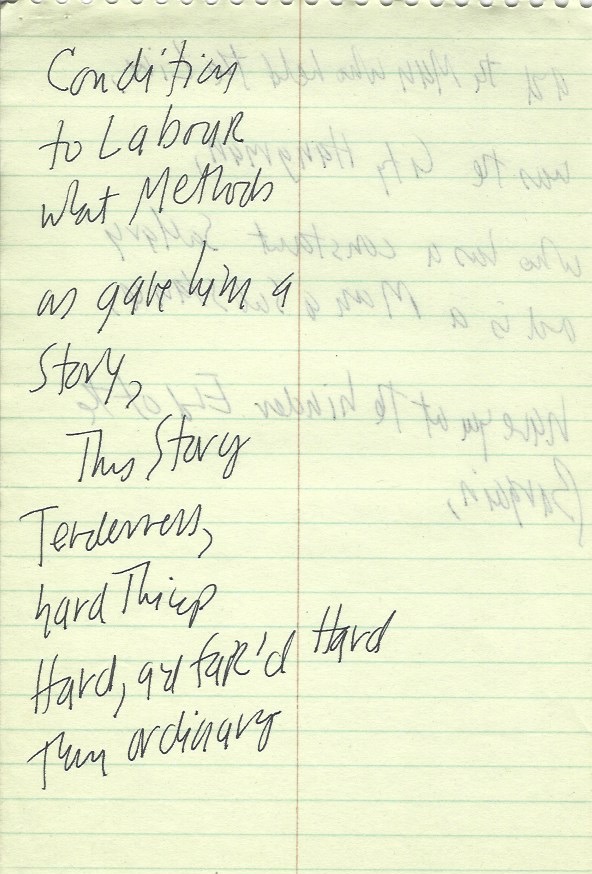 Condition
to Labour
what Methods
as gave him a
Story,
This Story
Tenderness,
hard Things
Hard, and far'd Hard
Than ordinary